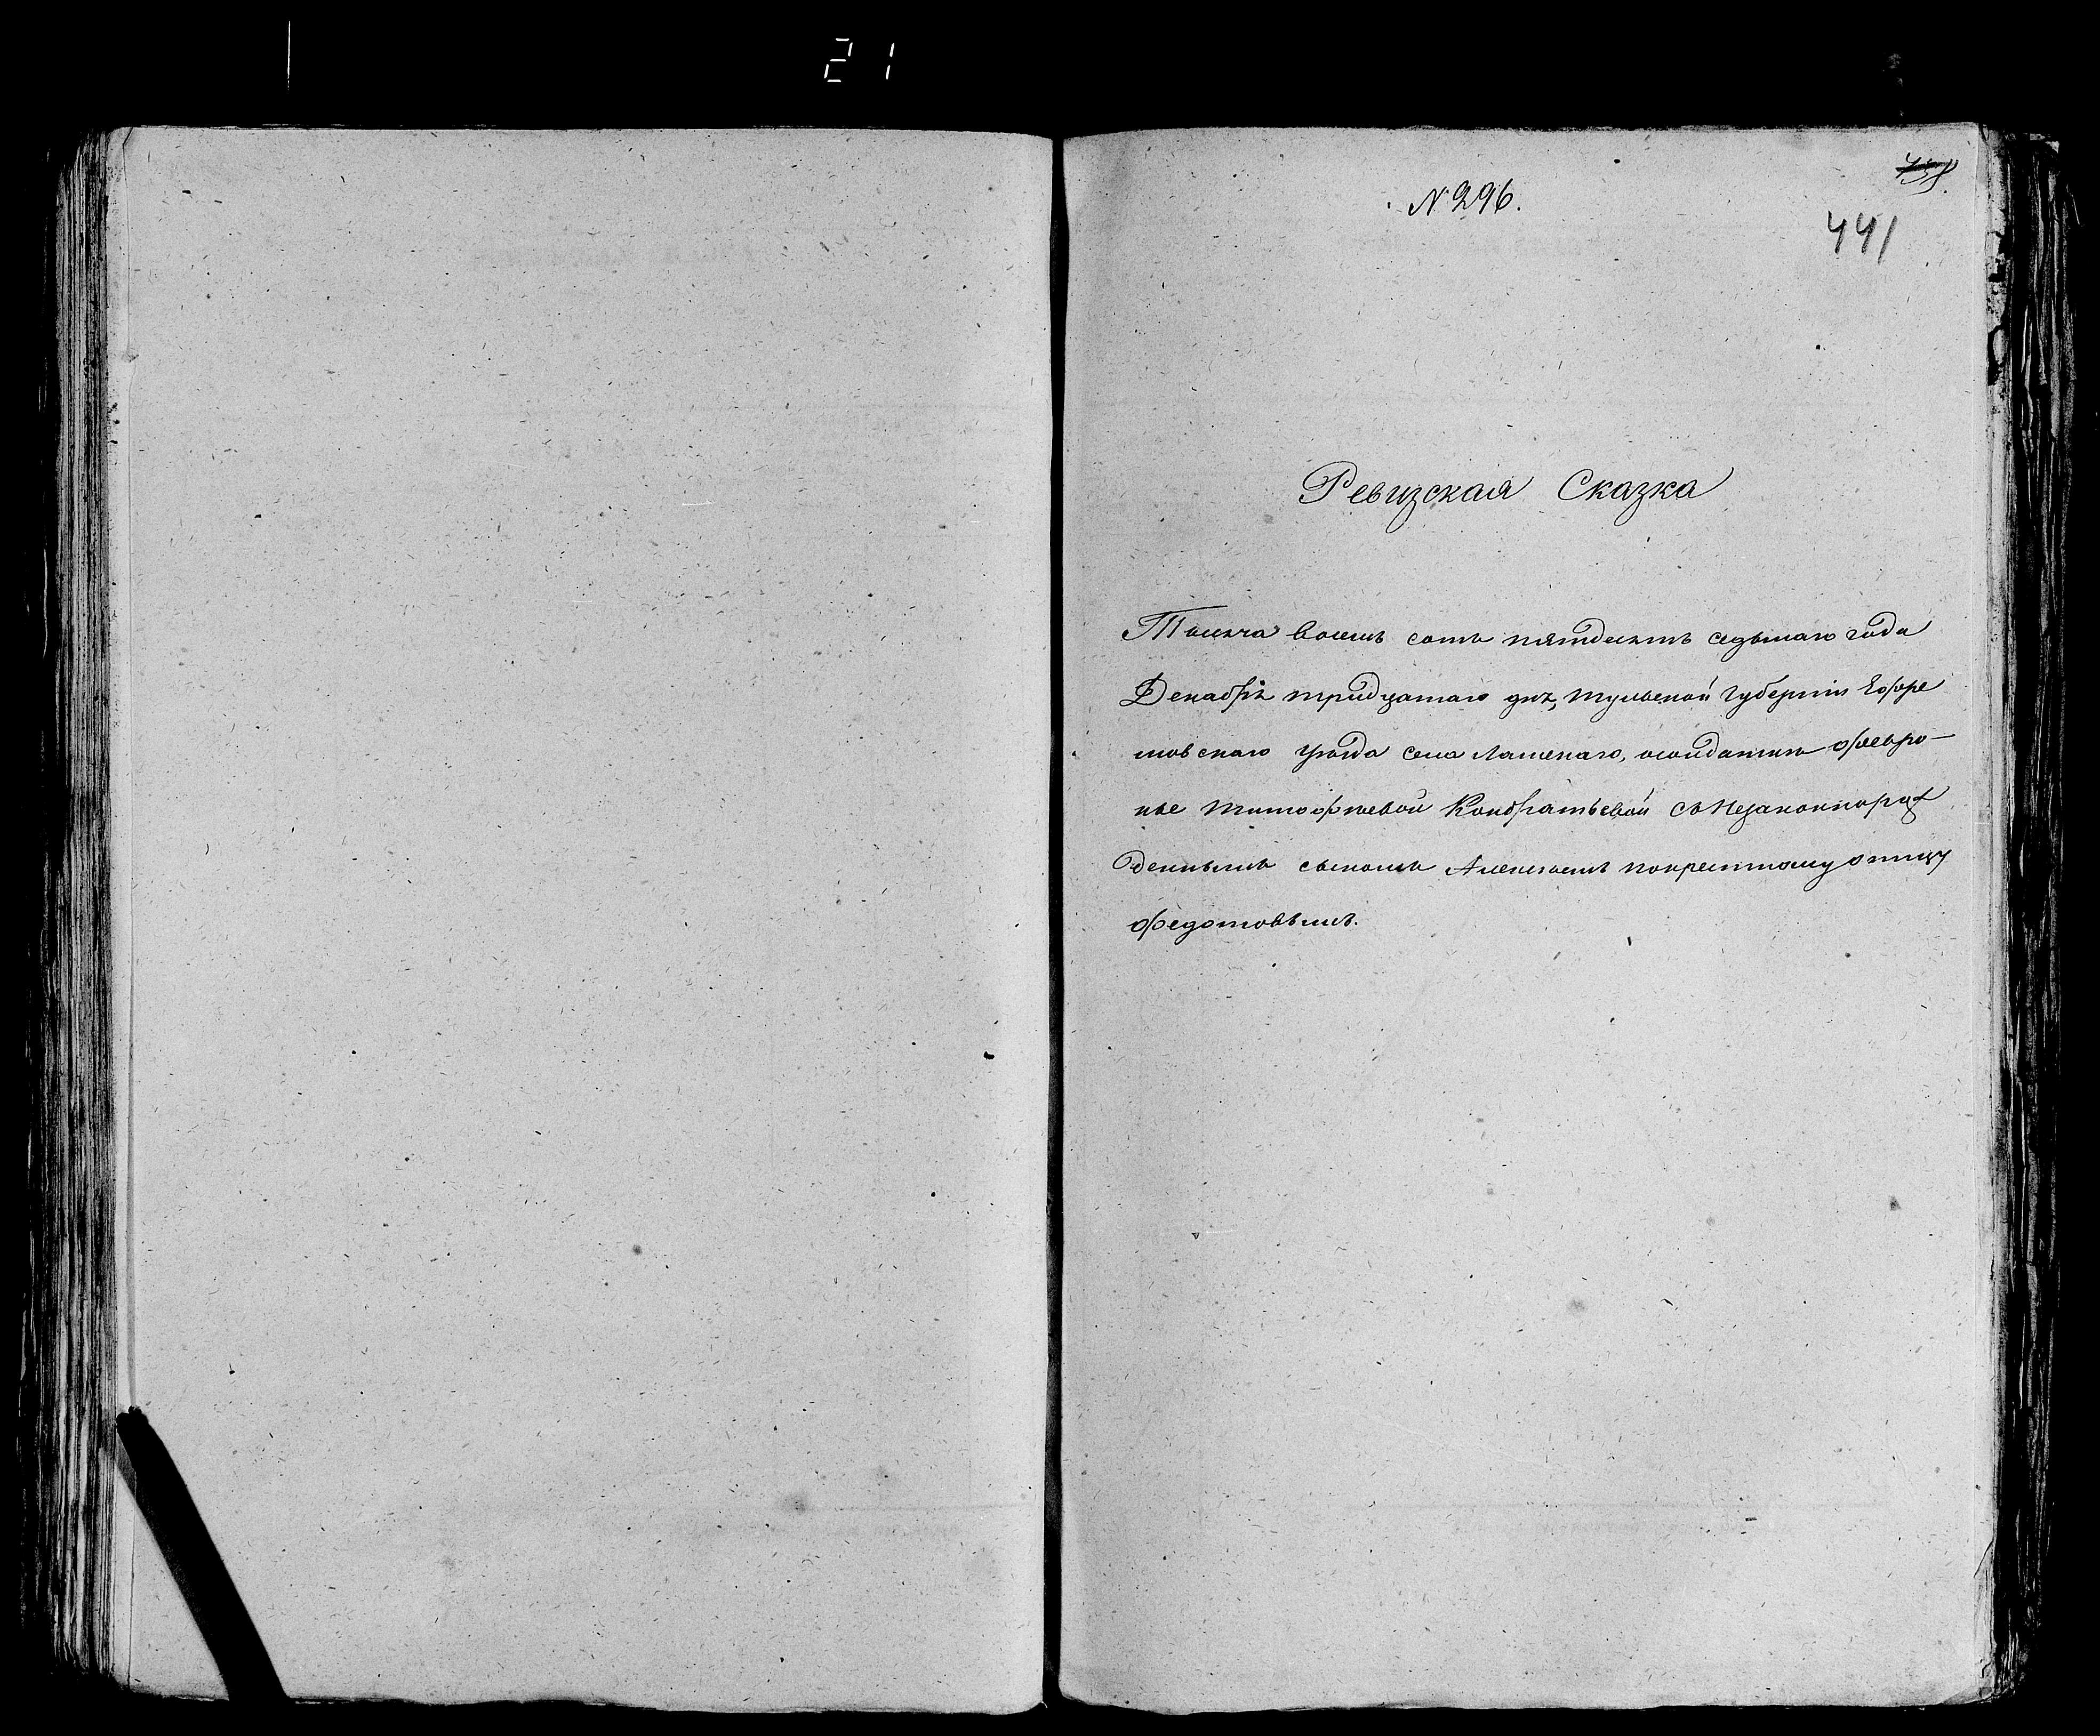 21
458
№ 296.
441
Ревизская Сказка
Тысяча восемь сотъ пятдесятъ седьмаго года
Декабря тридцатаго дня, тульской губерніи Ефре
мовскаго уѣзда села Лашенаго, солдатки февро-
нье тимофѣевой Кондратьевой съ незаконнорож
деннымъ сыномъ Алексѣемъ покрестному отцу
федотовымъ.